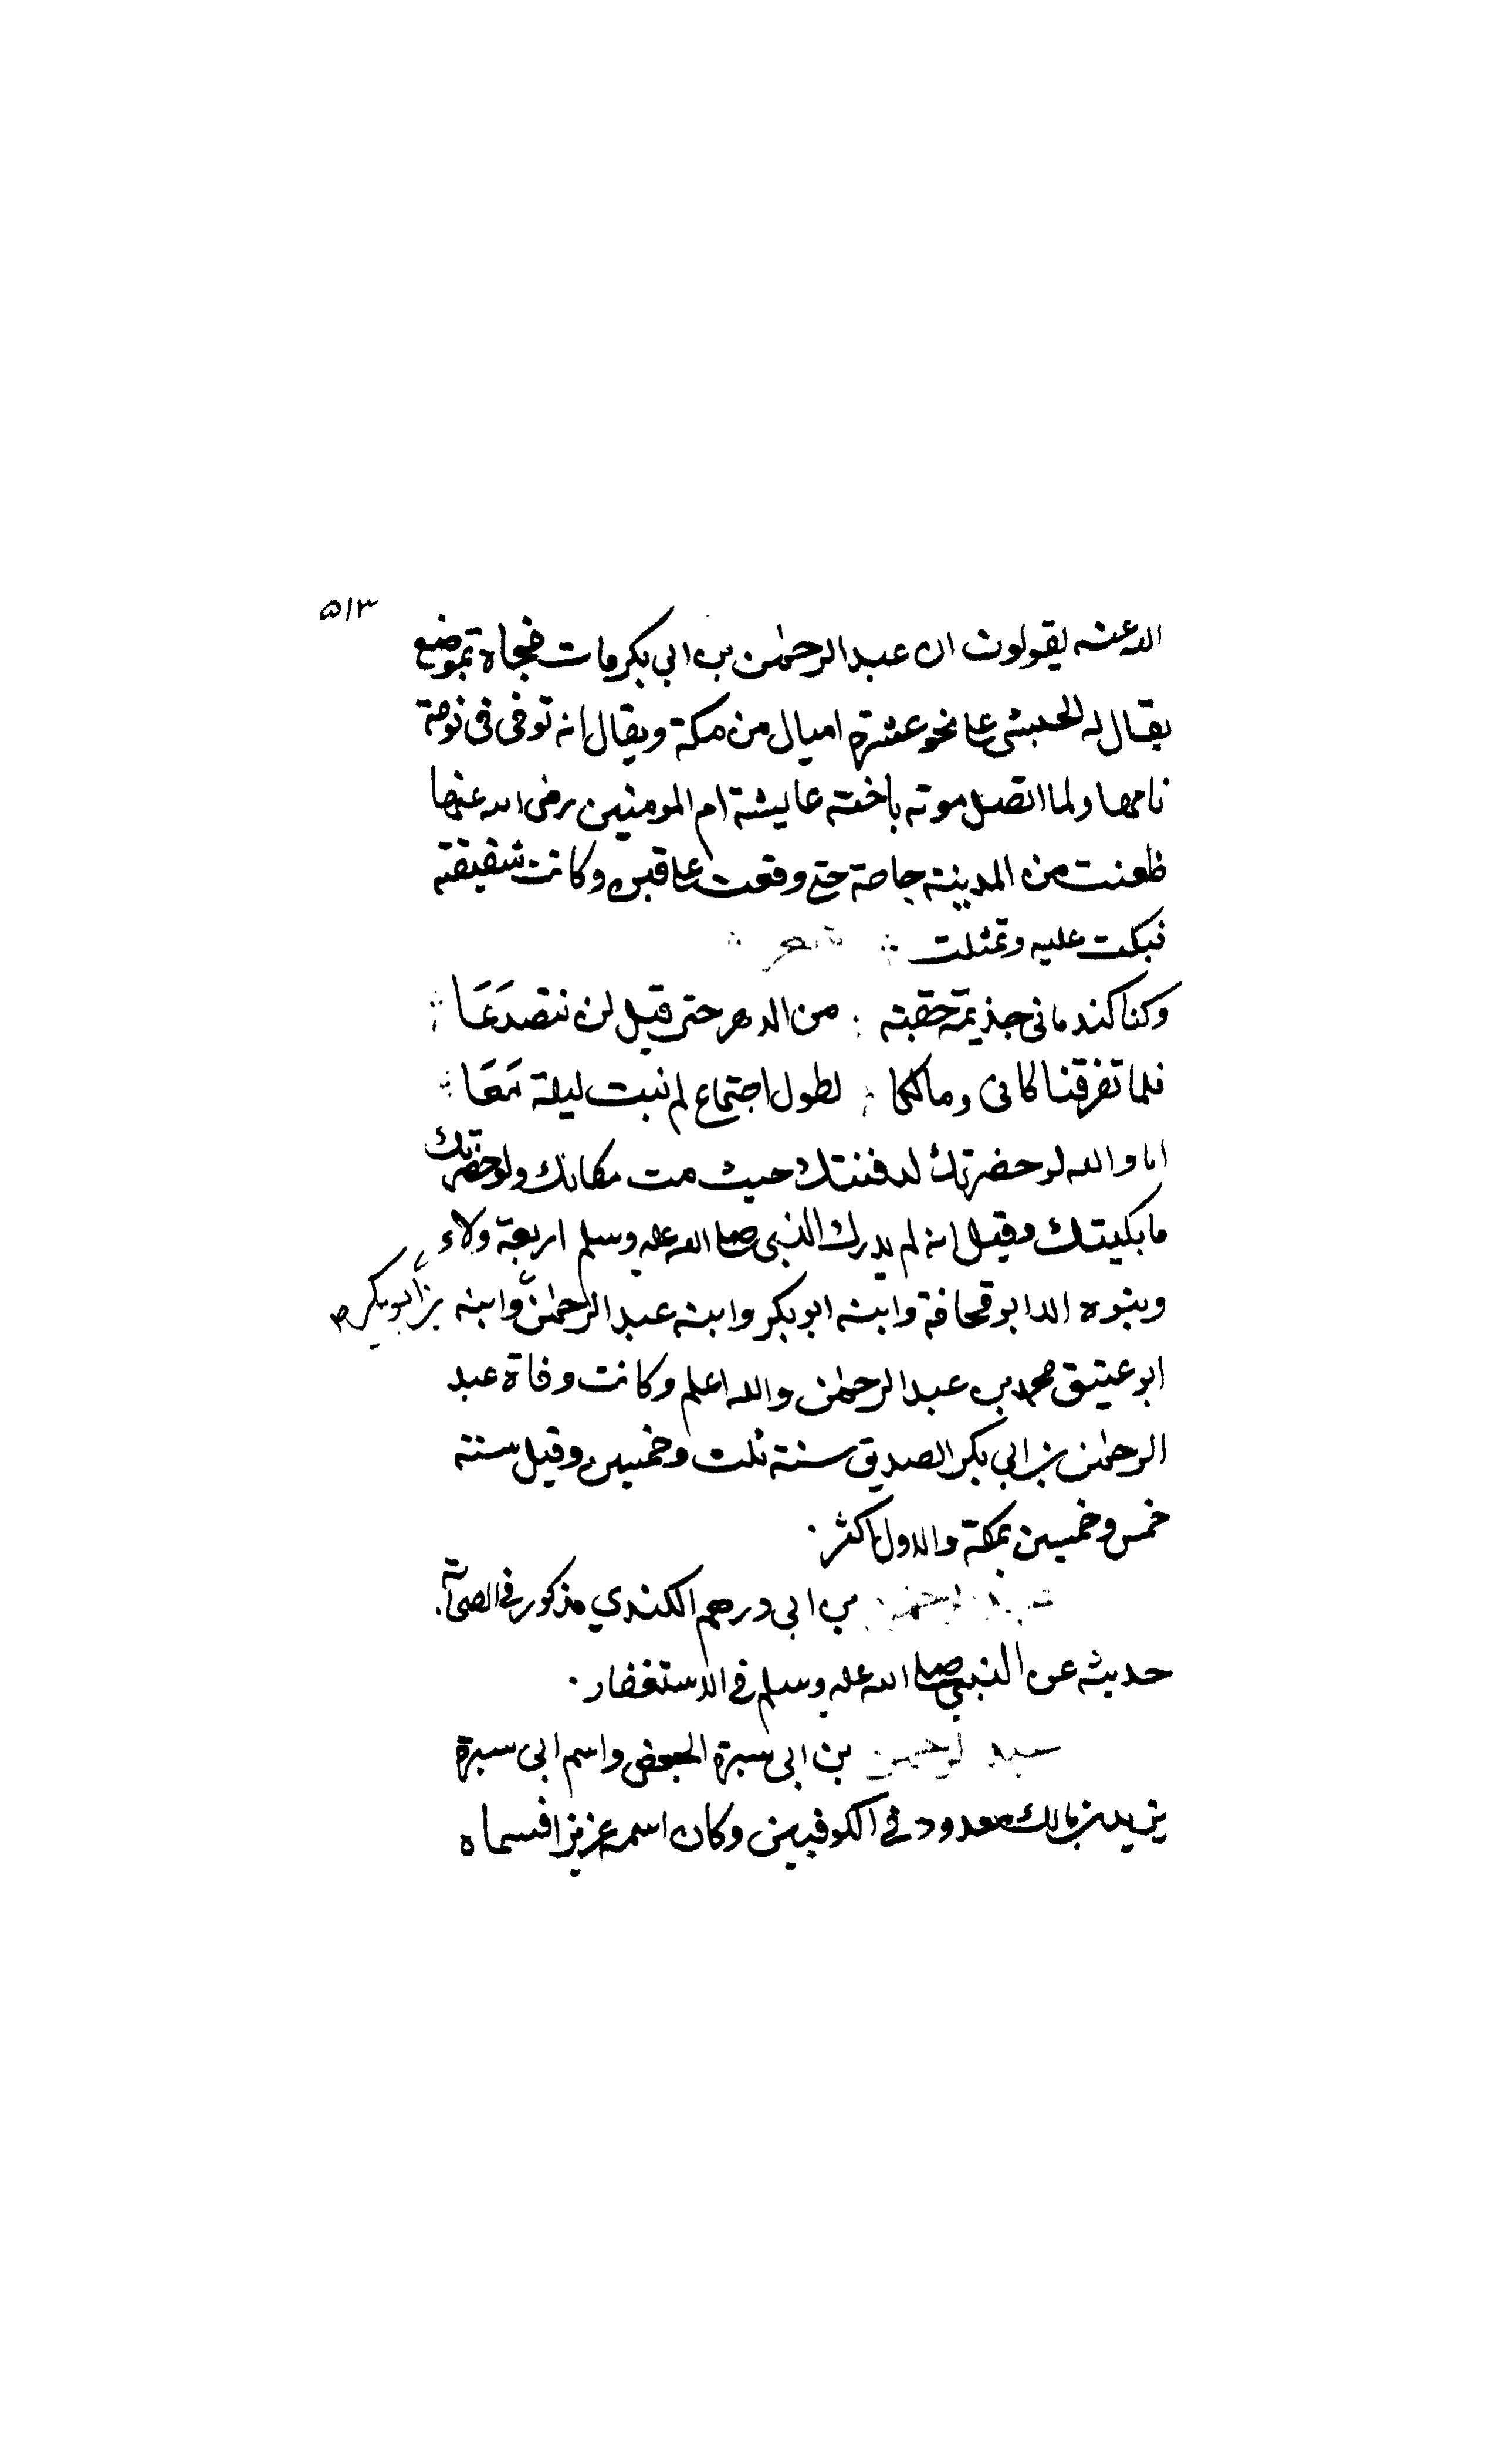 ٥١٣
الله عنه يقولون ان عبد الرحمٰن بن ابي بكر مات فجاة بموضع
يقال له الحبشي على نحو عشرة اميال من مكة ويقال انه توفى فى نومة
نامها ولما اتصل موته باخته عايشة ام المومنين رضى الله عنها
ظعنت من المدينة حاجة حتى وقفت على قبره وكانت شقيقته
فبكت عليه وتمثلت شعر
وكنا كندمانى جذيمة حقبة من الدهر حتى قيل لن نتصدعا
فلما تفرقنا كانى ومالكا لطول اجتماع لم نبت ليلة معا
اما والله لو حضرتك لدفنتك حيث مت مكانك ولو حضرتك
ما بكيتك وقيل انه لم يدرك النبى صلى الله عليه وسلم اربعة ولاء
وبنوه الا ابو قحافة وابنه ابو بكر وابنه عبد الرحمٰن وابنه بن ابو بكر
ابو عتيق محمد بن عبد الرحمٰن والله اعلم وكانت وفاة عبد
الرحمٰن بن ابي بكر الصديق سنة ثلث وخمسين وقيل سنة
خمس وخمسين بمكة والاول اكثر.
عبد الرحمن بن ابى درهم الكندي مذكور فى الصحابة.
حديثه عن النبى صلى الله عليه وسلم فى الاستغفار.
عبد الرحمن بن ابى سبرة الجعفى واسم ابى سبرة
يزيد بن مالك معدود فى الكوفيين وكان اسمه عزيزا فسماه